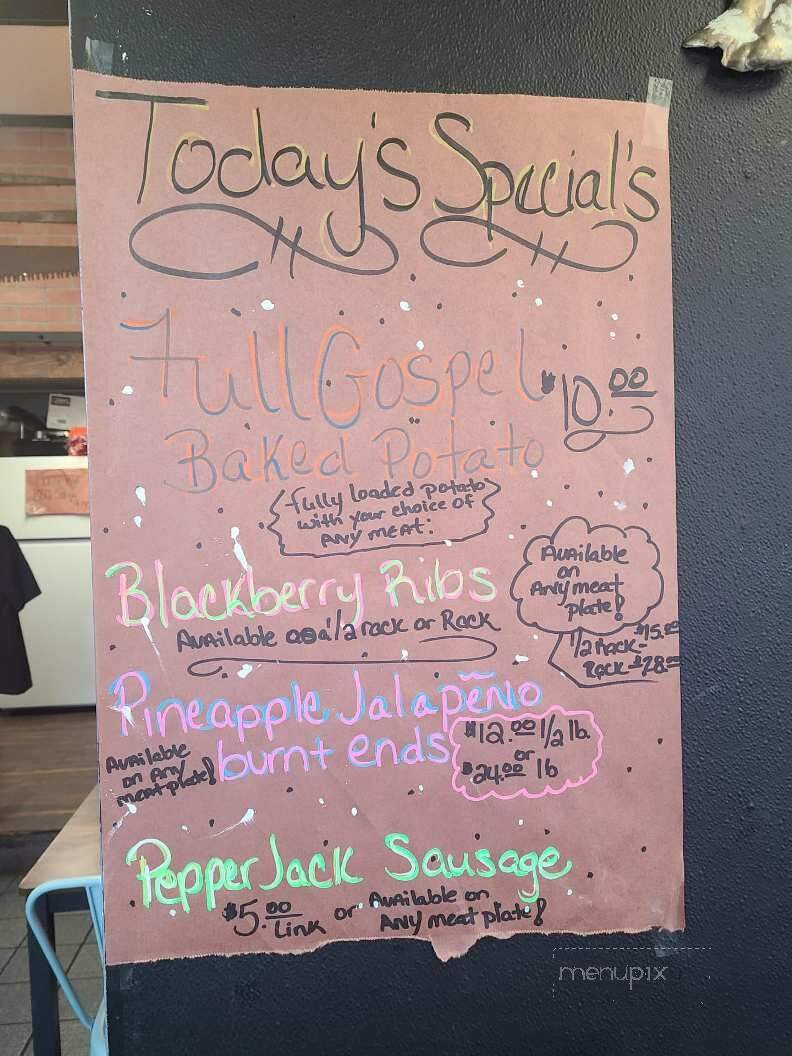 Today's Special's
Full Gospel
$10.00
Baked Potato
fully loaded potato
with your choice of
ANY MEAT!
Blackberry Ribs
Available as a 1/2 rack or Rack
Available
on
Any meat
plate!
1/2 Rack - $15.00
Rack - $28.00
Pineapple Jalapeño
burnt ends
Available
on Any
meat plate!
$12.00 1/2 lb.
or
$24.00 lb
Pepper Jack Sausage
$5.00 Link or Available on
Any meat plate!
menupix